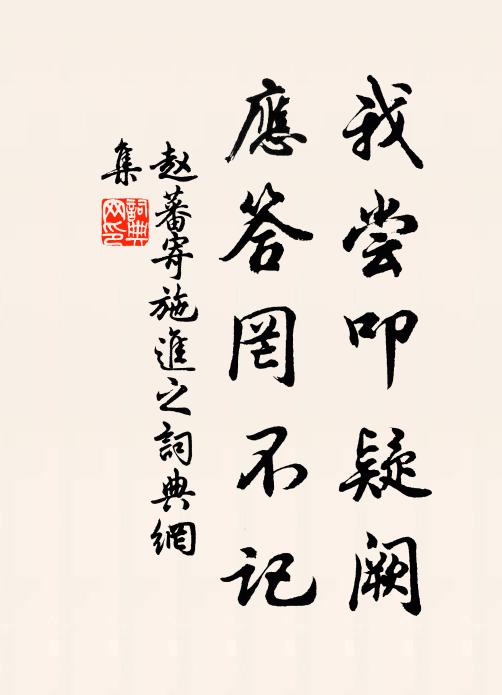 我尝叩疑阙
應答罔不记
赵蕃寄施進之詞典網
集
詞典網印